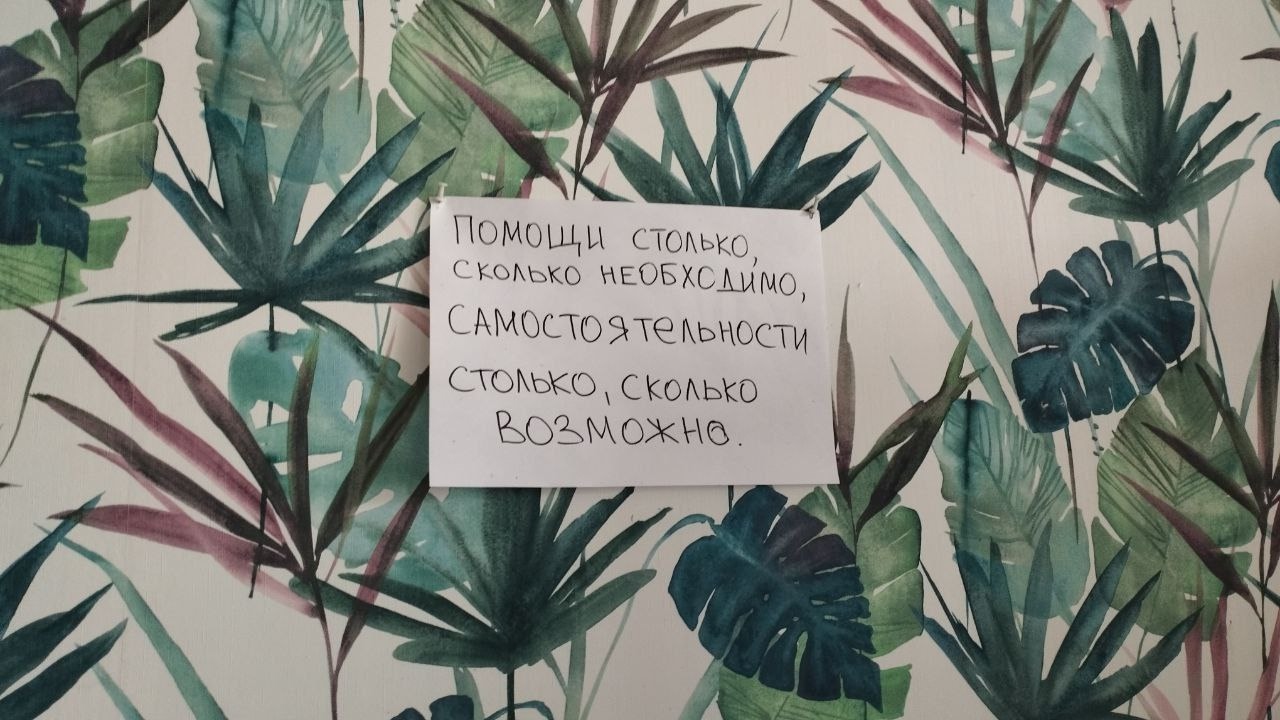 ПОМОЩИ СТОЛЬКО,
СКОЛЬКО НЕОБХОДИМО,
САМОСТОЯТЕЛЬНОСТИ
СТОЛЬКО, СКОЛЬКО
ВОЗМОЖНО.